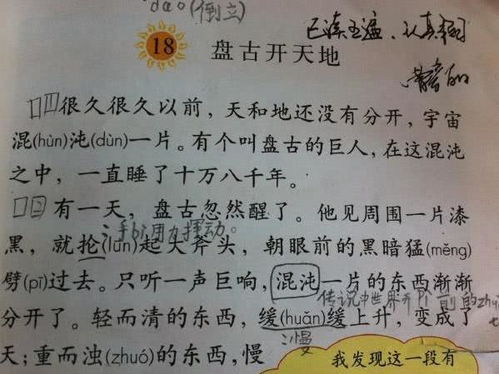 dào(倒立)
18 盘古开天地
已读五遍、认真
很久很久以前，天和地还没有分开，宇宙
混(hùn)沌(dùn)一片。有个叫盘古的巨人，在这混沌
之中，一直睡了十万八千年。
有一天，盘古忽然醒了。他见周围一片漆
手臂用力挥动。
黑，就抡(lūn)起大斧头，朝眼前的黑暗猛(měng)
劈(pī)过去。只听一声巨响，混沌一片的东西渐渐
传说中世界开 前的
分开了。轻而清的东西，缓(huǎn)缓上升，变成了
慢
天；重而浊(zhuó)的东西，慢
我发现这一段有